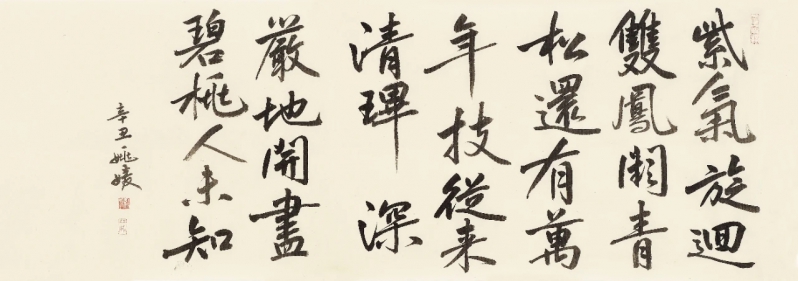 紫氣旋迴
雙鳳闕青
松還有萬
年枝從来
清深
嚴地開盡
碧桃人未知
辛丑姚媛